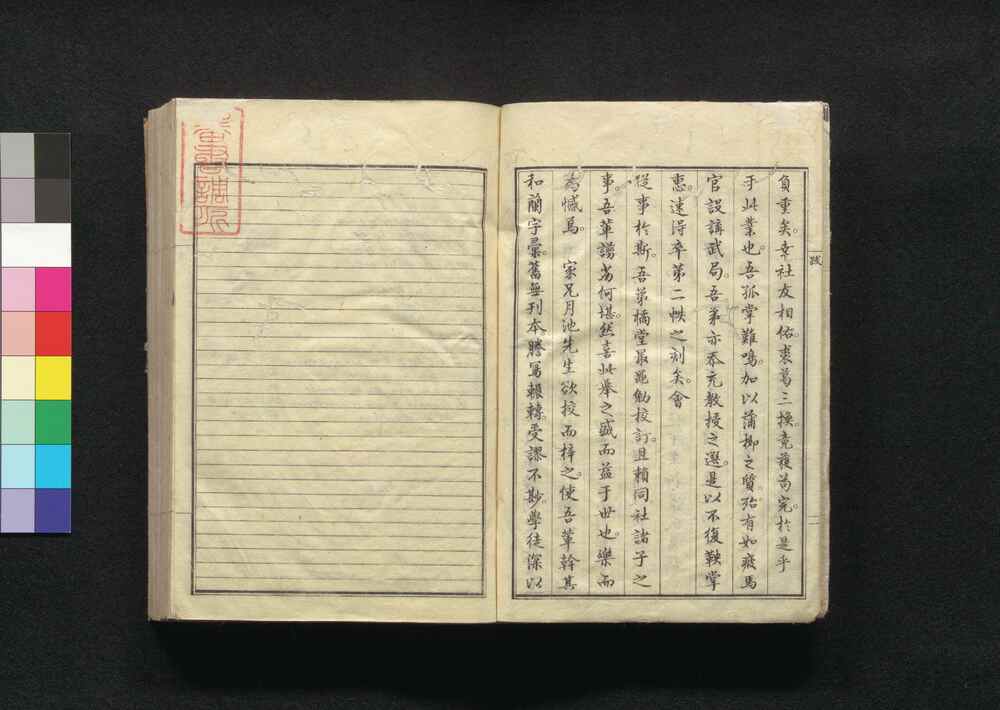 蕃書調所
和蘭字彙。舊無刊本。謄寫輾轉。受謬不尠。學徒深以
為憾焉。 家兄月池先生欲校而梓之。使吾輩幹其
事。吾輩譾劣何堪。然喜此舉之盛而益于世也。樂而
從事於斯。吾弟橘堂最黽勉校訂。且賴同社諸子之
惠。速得卒第二帙之刻矣。會
官設講武局。吾弟亦忝充教授之選。是以不復鞅掌
于此業也。吾孤掌難鳴。加以蒲柳之質。殆有如疲馬
負重矣。幸社友相佑。裘葛三換。竟獲為完。於是乎
跋